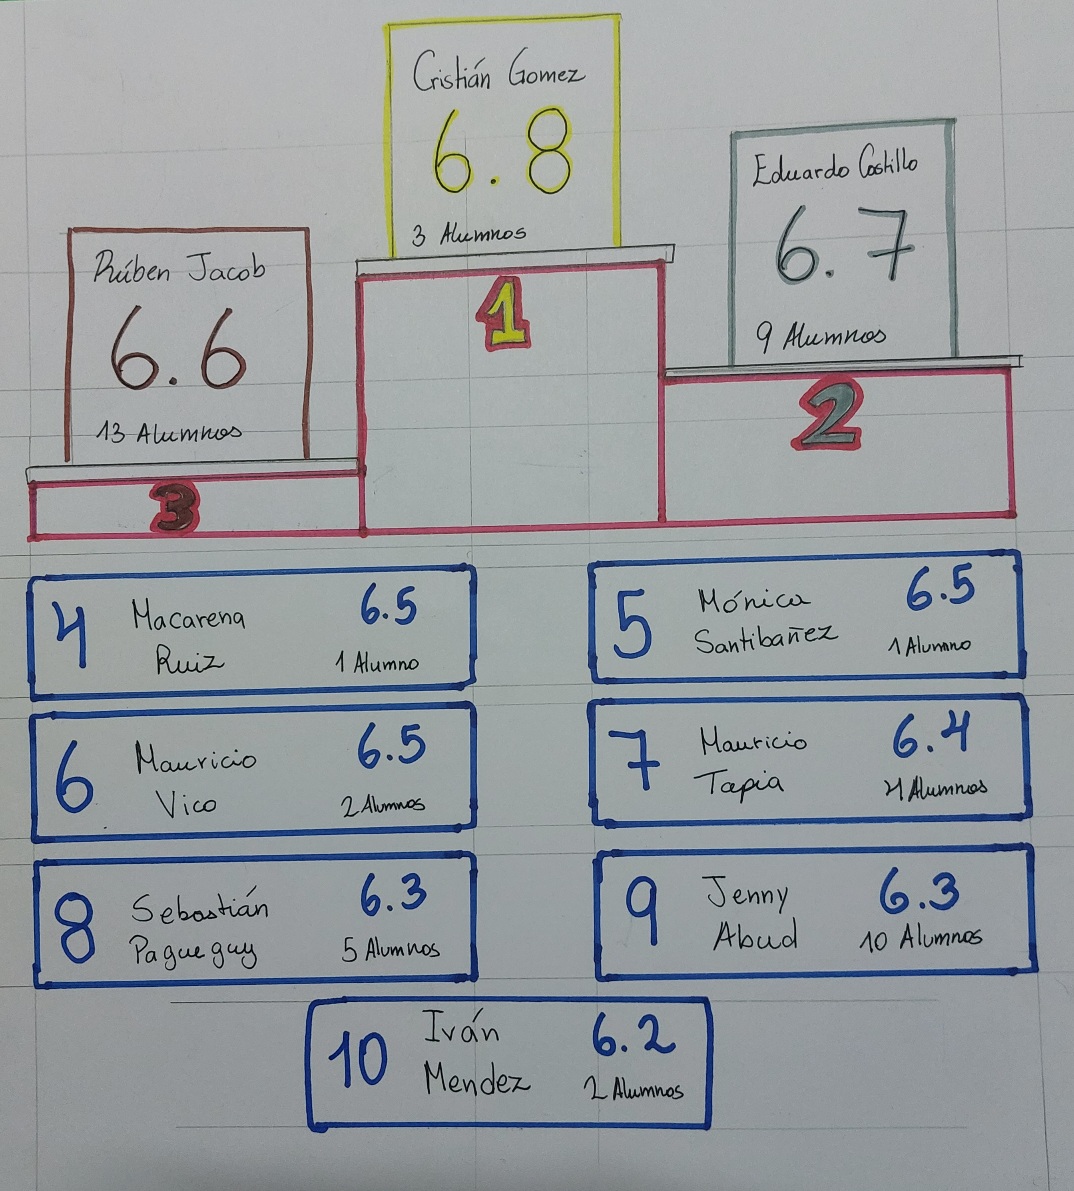 Cristián Gomez
6.8
3 Alumnos
1
Eduardo Castillo
6.7
9 Alumnos
2
Rúben Jacob
6.6
13 Alumnos
3
4 Macarena Ruiz 6.5
1 Alumno
5 Mónica Santibañez 6.5
1 Alumno
6 Mauricio Vico 6.5
2 Alumnos
7 Mauricio Tapia 6.4
4 Alumnos
8 Sebastián Pagueguy 6.3
5 Alumnos
9 Jenny Abud 6.3
10 Alumnos
10 Iván Mendez 6.2
2 Alumnos